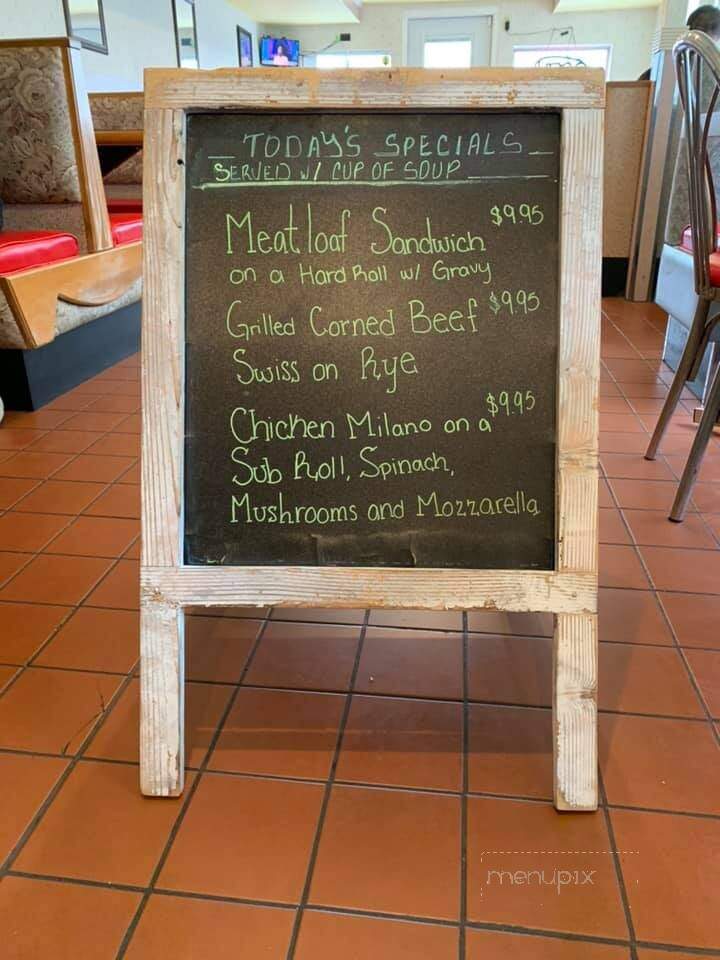 TODAY'S SPECIALS
SERVED W/ CUP OF SOUP
Meatloaf Sandwich $9.95
on a Hard Roll w/ Gravy
Grilled Corned Beef $9.95
Swiss on Rye
Chicken Milano on a $9.95
Sub Roll, Spinach,
Mushrooms and Mozzarella
menupix